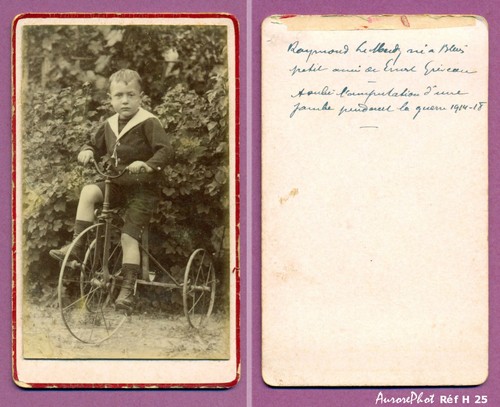 Raymond Le né à Blois
petit ami de Ernest
A subi l'amputation d'une
jambe pendant la guerre 1914-18
AurorePhot Réf H 25